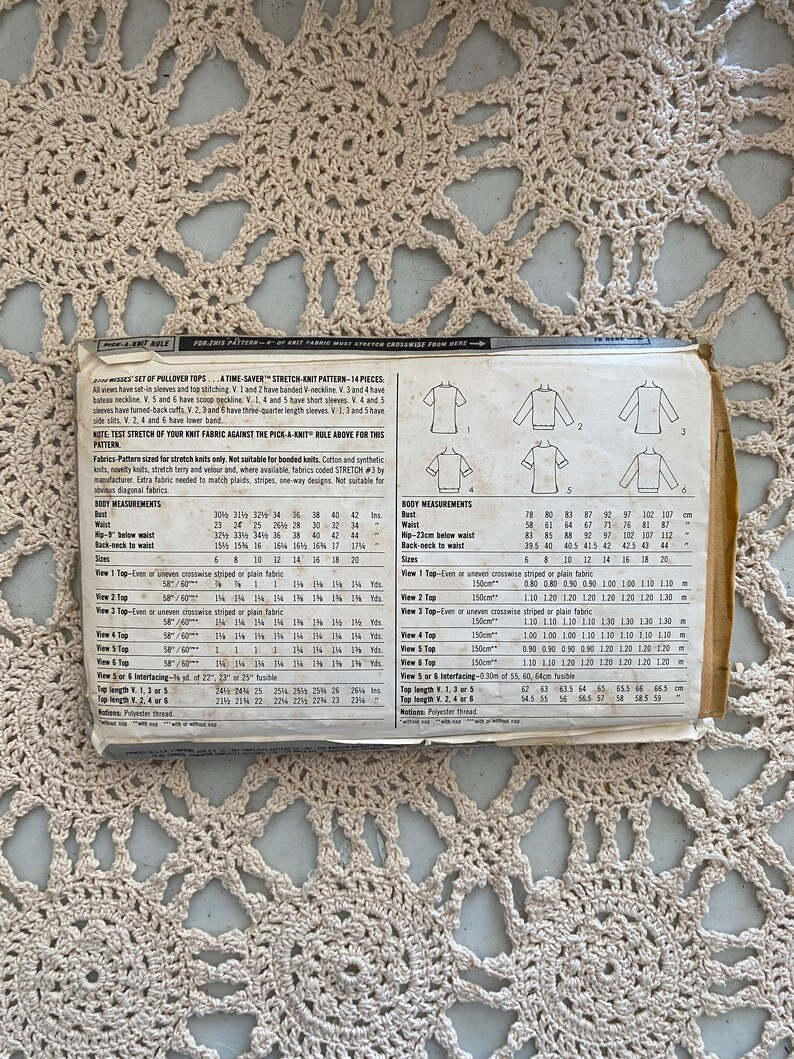 PICK-A-KNIT RULE FOR THIS PATTERN—4" OF KNIT FABRIC MUST STRETCH CROSSWISE FROM HERE TO HERE
MISSES' SET OF PULLOVER TOPS . . . A TIME-SAVER™ STRETCH-KNIT PATTERN—14 PIECES:
All views have set-in sleeves and top stitching. V. 1 and 2 have banded V-neckline. V. 3 and 4 have
bateau neckline. V. 5 and 6 have scoop neckline. V. 1, 4 and 5 have short sleeves. V. 4 and 5
sleeves have turned-back cuffs. V. 2, 3 and 6 have three-quarter length sleeves. V. 1, 3 and 5 have
side slits. V. 2, 4 and 6 have lower band.
NOTE: TEST STRETCH OF YOUR KNIT FABRIC AGAINST THE PICK-A-KNIT® RULE ABOVE FOR THIS
PATTERN.
Fabrics-Pattern sized for stretch knits only. Not suitable for bonded knits. Cotton and synthetic
knits, novelty knits, stretch terry and velour and, where available, fabrics coded STRETCH #3 by
manufacturer. Extra fabric needed to match plaids, stripes, one-way designs. Not suitable for
obvious diagonal fabrics.
BODY MEASUREMENTS
Bust 30½ 31½ 32½ 34 36 38 40 42 Ins.
Waist 23 24 25 26½ 28 30 32 34 "
Hip-9" below waist 32½ 33½ 34½ 36 38 40 42 44 "
Back-neck to waist 15½ 15¾ 16 16¼ 16½ 16¾ 17 17¼ "
Sizes 6 8 10 12 14 16 18 20
View 1 Top-Even or uneven crosswise striped or plain fabric
58"/60"** ⅞ ⅞ 1 1 1⅛ 1⅛ 1⅛ 1¼ Yds.
View 2 Top 58"/60"** 1¼ 1¼ 1¼ 1¼ 1⅜ 1⅜ 1⅜ 1⅜ Yds.
View 3 Top-Even or uneven crosswise striped or plain fabric
58"/60"** 1¼ 1¼ 1¼ 1¼ 1⅜ 1⅜ 1½ 1½ Yds.
View 4 Top 58"/60"** 1⅛ 1⅛ 1⅛ 1⅛ 1¼ 1¼ 1¼ 1¼ Yds.
View 5 Top 58"/60"** 1 1 1 1 1¼ 1¼ 1¼ 1¼ Yds.
View 6 Top 58"/60"** 1¼ 1¼ 1¼ 1¼ 1¼ 1⅜ 1⅜ 1⅜ Yds.
View 5 or 6 Interfacing-⅜ yd. of 22", 23" or 25" fusible
Top length V. 1, 3 or 5 24½ 24¾ 25 25¼ 25½ 25¾ 26 26¼ Ins.
Top length V. 2, 4 or 6 21½ 21¾ 22 22¼ 22½ 22¾ 23 23¼ "
Notions: Polyester thread.
*without nap **with nap ***with or without nap
1
2
3
4
5
6
BODY MEASUREMENTS
Bust 78 80 83 87 92 97 102 107 cm
Waist 58 61 64 67 71 76 81 87 "
Hip-23cm below waist 83 85 88 92 97 102 107 112 "
Back-neck to waist 39.5 40 40.5 41.5 42 42.5 43 44 "
Sizes 6 8 10 12 14 16 18 20
View 1 Top-Even or uneven crosswise striped or plain fabric
150cm** 0.80 0.80 0.90 0.90 1.00 1.00 1.10 1.10 m
View 2 Top 150cm** 1.10 1.20 1.20 1.20 1.20 1.20 1.20 1.30 m
View 3 Top-Even or uneven crosswise striped or plain fabric
150cm** 1.10 1.10 1.10 1.10 1.30 1.30 1.30 1.30 m
View 4 Top 150cm** 1.00 1.00 1.00 1.00 1.10 1.10 1.10 1.10 m
View 5 Top 150cm** 0.90 0.90 0.90 0.90 1.20 1.20 1.20 1.20 m
View 6 Top 150cm** 1.10 1.10 1.20 1.20 1.20 1.20 1.20 1.20 m
View 5 or 6 Interfacing-0.30m of 55, 60, 64cm fusible
Top length V. 1, 3 or 5 62 63 63.5 64 65 65.5 66 66.5 cm
Top length V. 2, 4 or 6 54.5 55 56 56.5 57 58 58.5 59 "
Notions: Polyester thread.
*without nap **with nap ***with or without nap
PRINTED IN U.S.A.